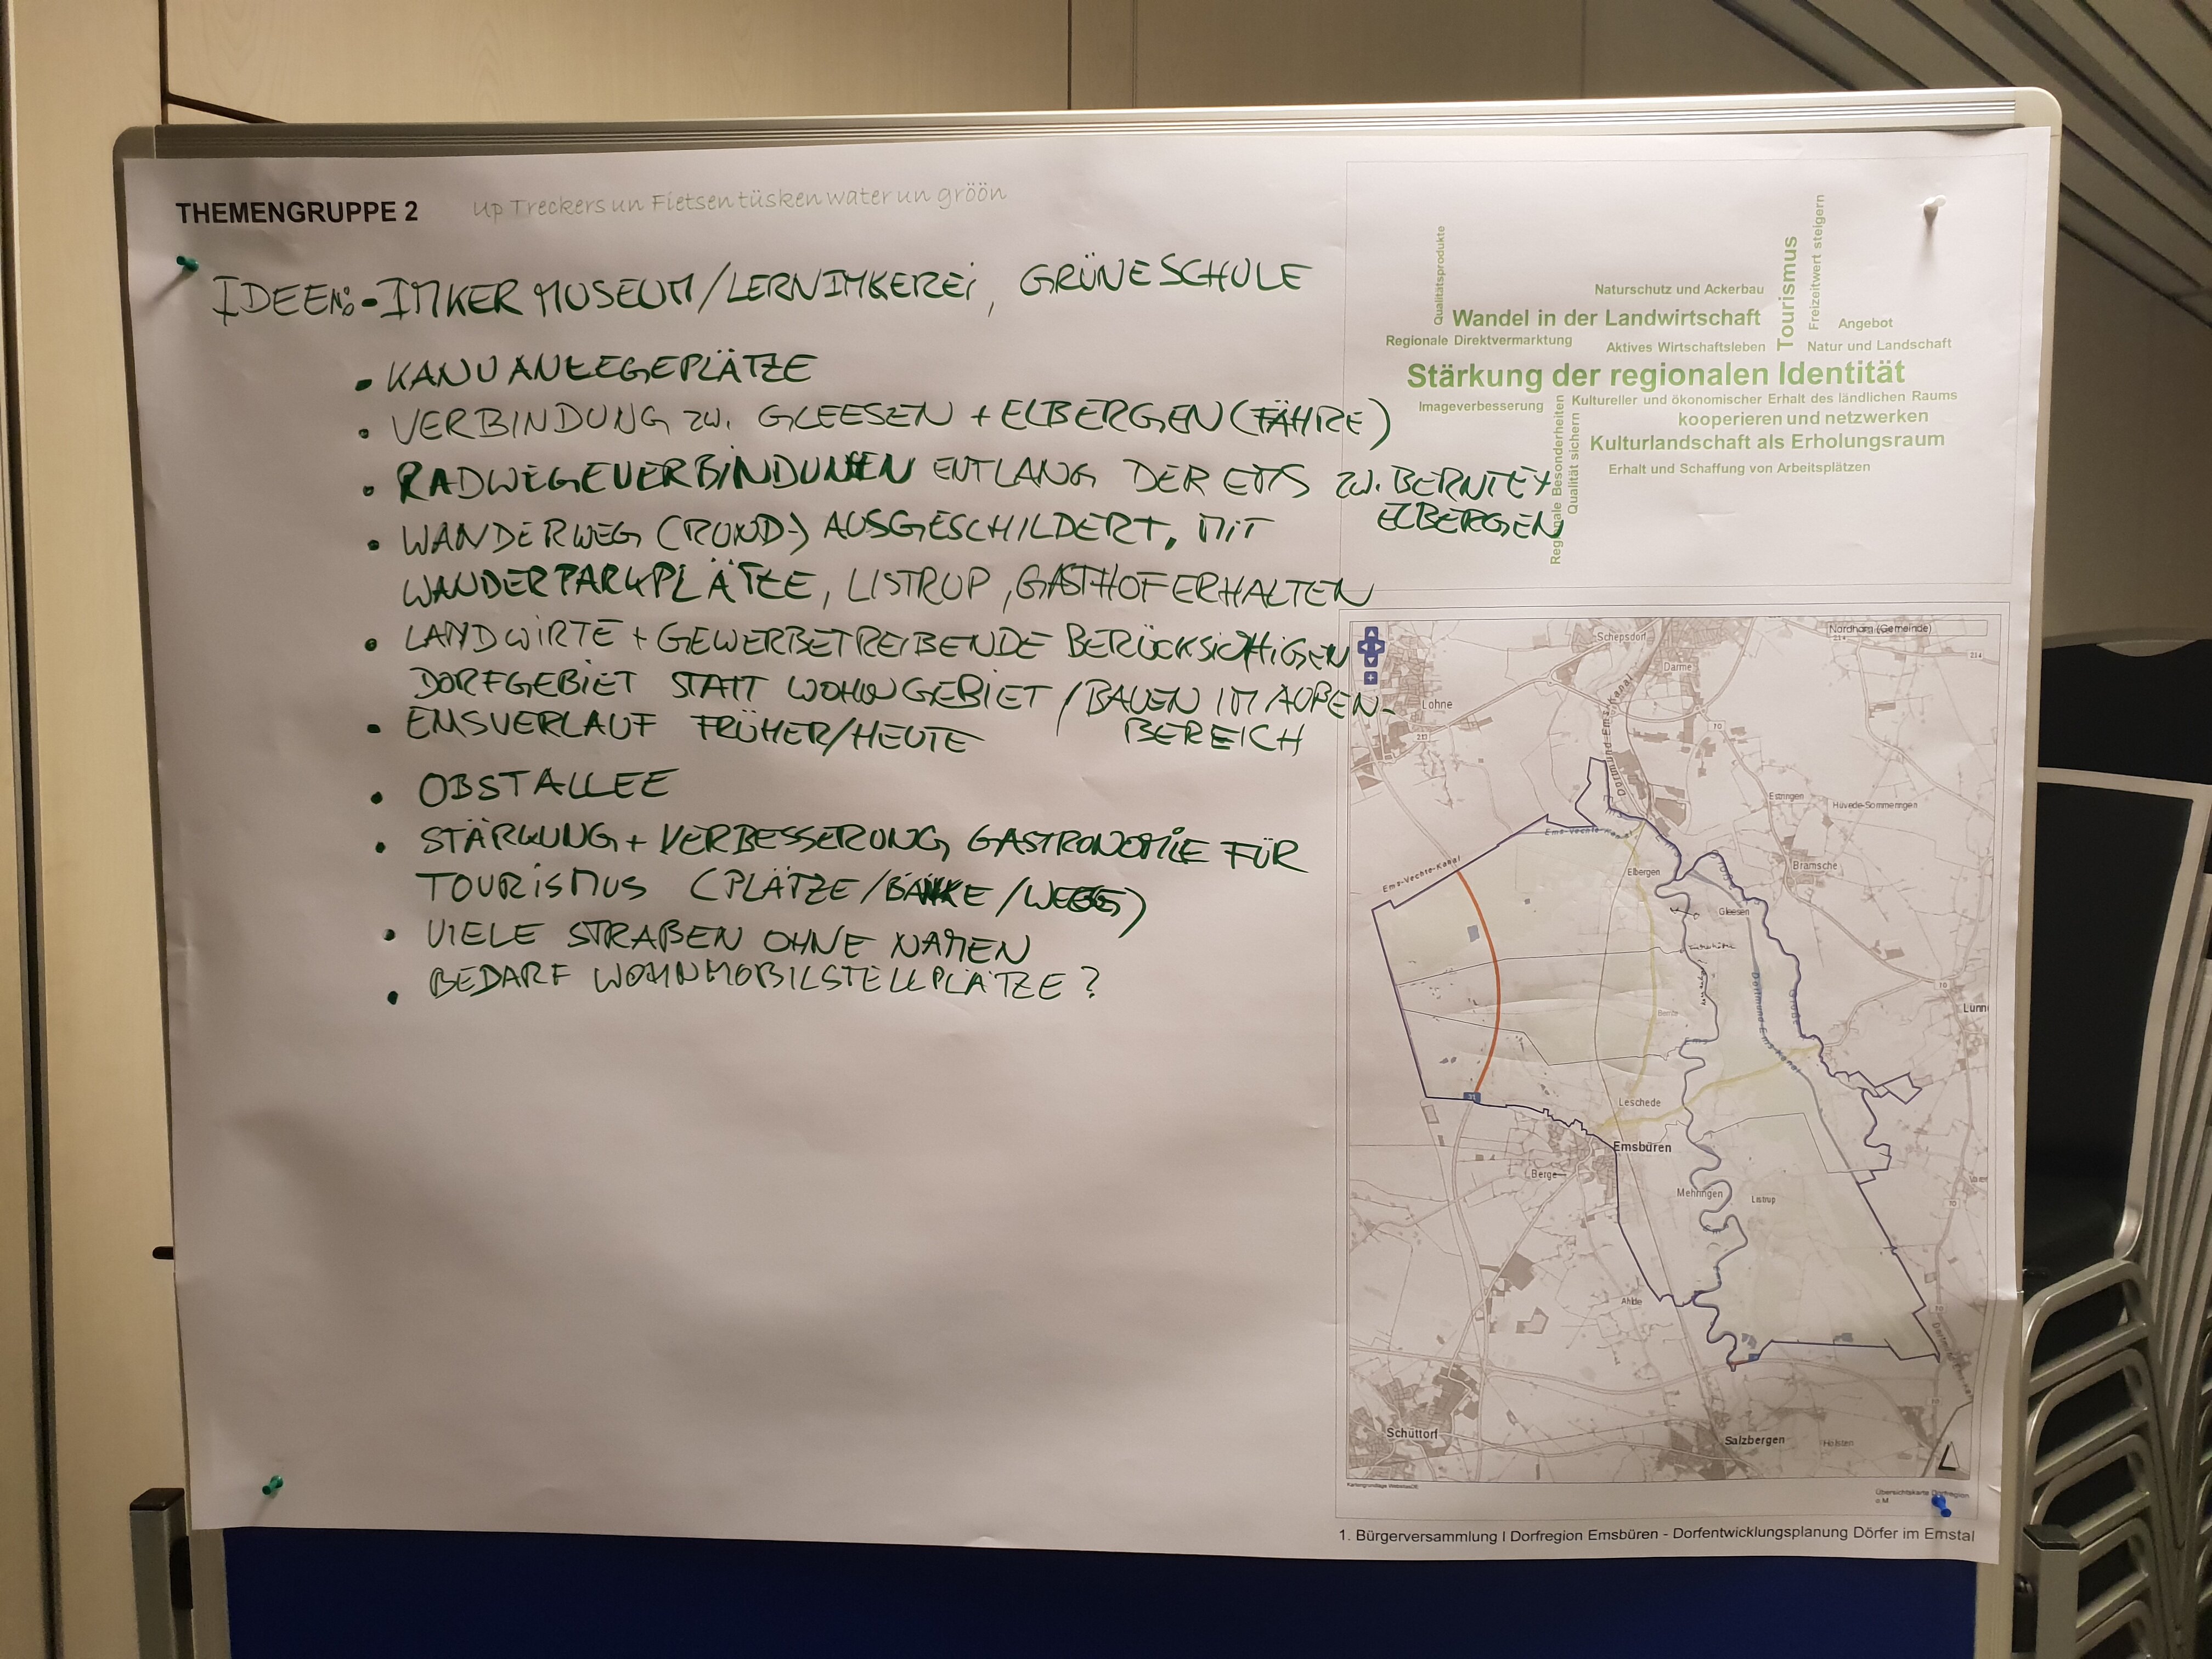 THEMENGRUPPE 2
up Treckers un Fietsen tüsken water un gröön
IDEEN: - IMKER MUSEUM/LERNIMKEREI, GRÜNE SCHULE
• KANU ANLEGEPLÄTZE
• VERBINDUNG ZW. GLEESEN + ELBERGEN (FÄHRE)
• RADWEGEVERBINDUNGEN ENTLANG DER EMS ZW. BERNTE +
ELBERGEN
• WANDERWEG (RUND-) AUSGESCHILDERT, MIT
WANDERPARKPLÄTZE, LISTRUP, GASTHOF ERHALTEN
• LANDWIRTE + GEWERBETREIBENDE BERÜCKSICHTIGEN
DORFGEBIET STATT WOHNGEBIET / BAUEN IM AUßEN-
BEREICH
• EMSVERLAUF FRÜHER/HEUTE
• OBSTALLEE
• STÄRKUNG + VERBESSERUNG GASTRONOMIE FÜR
TOURISMUS (PLÄTZE/BÄNKE/WEGE)
• VIELE STRAßEN OHNE NAMEN
• BEDARF WOHNMOBILSTELLPLÄTZE?
Qualitätsprodukte
Tourismus
Freizeitwert steigern
Naturschutz und Ackerbau
Wandel in der Landwirtschaft
Angebot
Regionale Direktvermarktung
Aktives Wirtschaftsleben
Natur und Landschaft
Stärkung der regionalen Identität
Imageverbesserung
Kultureller und ökonomischer Erhalt des ländlichen Raums
kooperieren und netzwerken
Kulturlandschaft als Erholungsraum
Erhalt und Schaffung von Arbeitsplätzen
Regionale Besonderheiten
Qualität sichern
Nordhorn (Gemeinde)
Schepsdorf
214
Darme
Lohne
213
70
Dortmund-Ems-Kanal
Estringen
Huvede-Sommeringen
Ems-Vechte-Kanal
Ems-Vechte-Kanal
Bramsche
Elbergen
Gleesen
Dortmund-Ems-Kanal
Bernte
70
Lünn
31
Leschede
Emsbüren
Berge
Mehringen
Listrup
70
Ahlde
70
Schüttorf
Salzbergen
Holsten
Übersichtskarte Dorfregion
o.M
1. Bürgerversammlung I Dorfregion Emsbüren - Dorfentwicklungsplanung Dörfer im Emstal